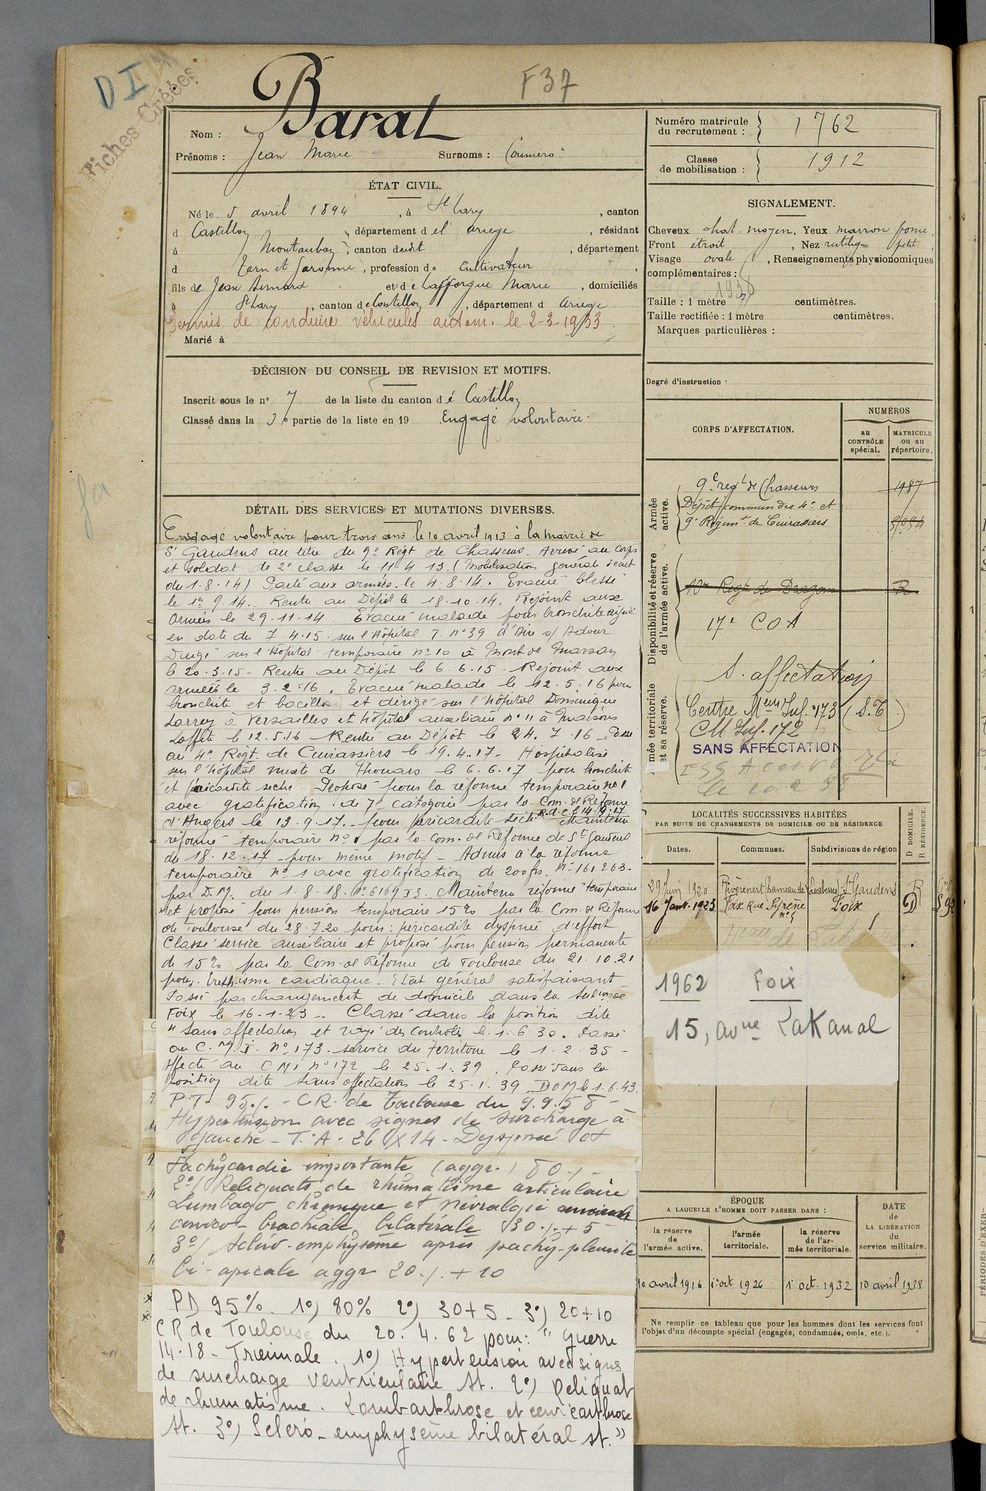 D I
Fiches Créées
F37
Nom : Barat
Prénoms : Jean Marie Surnoms :
Numéro matricule du recrutement : 1762
Classe de mobilisation : 1912
ÉTAT CIVIL.
Né le 5 avril 1894, à St Lary, canton
d Castillon, département de l' ariege, résidant
à Montauban, canton dudit, département
d Tarn et Garonne, profession de Cultivateur
fils de Jean Bernard et de Lafforgue Marie, domiciliés
à St Lary, canton de Castillon, département d ariege
Permis de conduire véhicules autom. le 2-3-1933
Marié à
SIGNALEMENT.
Cheveux chat. moyen, Yeux marron foncé,
Front étroit, Nez rectiligne petit,
Visage ovale, Renseignements physionomiques
complémentaires :
Taille : 1 mètre centimètres.
Taille rectifiée : 1 mètre centimètres.
Marques particulières :
Degré d'instruction :
DÉCISION DU CONSEIL DE REVISION ET MOTIFS.
Inscrit sous le n° 7 de la liste du canton de Castillon
Classé dans la 3e partie de la liste en 19 Engagé volontaire.
CORPS D'AFFECTATION.
NUMÉROS
au CONTRÔLE spécial.
MATRICULE ou au répertoire.
Armée active.
9e regt de Chasseurs 1987
Dépôt commun des 4e et
9e Régimt de Cuirassiers
Disponibilité et réserve de l'armée active.
Regt de Dragons
17e COA
S. affectation
mée territoriale et sa réserve.
Centre Mon Inf. 173 (S.T.)
CM Inf. 172
SANS AFFECTATION
DÉTAIL DES SERVICES ET MUTATIONS DIVERSES.
Engagé volontaire pour trois ans le 10 avril 1913 à la mairie de
St Gaudens au titre du 9e Regt de Chasseurs. Arrivé au corps
et soldat de 2e classe le 11.4.13. (Mobilisation générale décret
du 1.8.14) Parti aux armées le 4.8.14. Evacué blessé
le 1er 9.14. Rentré au Dépôt le 18.10.14. Rejoint aux
Armées le 29.11.14. Evacué malade pour bronchite aiguë
en date du 7.4.15. sur l'Hôpital T. n° 39 d'Aire s/ Adour
Dirigé sur l'Hopital temporaire n° 10 à Mont de Marsan
le 20.3.15 - Rentré au Dépôt le 6.6.15. Rejoint aux
armées le 3.2.16. Evacué malade le 12.5.16 pour
bronchite et bacilles et dirigé sur l'hôpital Dominique
Larrey à Versailles et hôpital auxiliaire n° 11 à Maisons
Laffite le 12.5.16 Rentré au Dépôt le 24.7.16 - Passé
au 4e Regt de Cuirassiers le 19.4.17. Hospitalisé
sur l'hôpital mixte de Thouars le 6.6.17 pour bronchite
et péricardite sèche Proposé pour la réforme temporaire n° 1
avec gratification de 7e catégorie par la Com. de Réforme
d'Angers le 13.9.17. pour péricardite sèche Maintenu
réformé temporaire n° 1 par la Com. de Réforme de St Gaudens
du 18.12.17 pour même motif - Admis à la réforme
temporaire n° 1 avec gratification de 200 frs. N° 161263.
par D.M. du 1.8.18. Maintenu réforme temporaire
et proposé pour pension temporaire 15% par la Com. de Réforme
de Toulouse du 28.7.20 pour : péricardite dyspnée d'effort
Classé service auxiliaire et proposé pour pension permanente
de 15% par la Com. de Réforme de Toulouse du 21.10.21
pour éréthisme cardiaque. Etat général satisfaisant
Passé par changement de domicile dans la subdon de
Foix le 16.1.23 - Classé dans la position dite
"Sans affectation et rayé des Contrôles le 1.6.30. Passé
au C.M.I. n° 173. service du territoire le 1.2.35 -
Affecté au CMI n° 172 le 25.1.39. Passé dans la
position dite sans affectation le 25.1.39. DOM le 1.6.43
P.T. 95% - CR. de Toulouse du 9.9.58 -
Hypertension avec signes de surcharge à
gauche - T.A - 26 X 14 - Dyspnée et
Tachycardie importante (aggr.) 80% -
2°/ Reliquats de rhumatisme articulaire
Lumbago chronique et névralgie
cervico-brachiale bilatérale 30% + 5
3°/ Scléro-emphysème après pachy-pleurite
bi-apicale aggr 20% + 10
PD 95%. 1°) 80% 2°) 30+5 - 3°) 20+10
CR de Toulouse du 20.4.62 pour : "Guerre
14-18 - Trimale. 1°) Hypertension avec signes
de surcharge ventriculaire St. 2°) Reliquat
de rhumatisme. Lombarthrose et cervicarthrose
St. 3°) Scléro-emphysème bilatéral st."
LOCALITÉS SUCCESSIVES HABITÉES
PAR SUITE DE CHANGEMENTS DE DOMICILE OU DE RÉSIDENCE.
Dates. Communes. Subdivisions de région
D DOMICILE. R RÉSIDENCE.
29 Juin 1920 Rivèrenert hameau de St Gaudens R
16 Janv. 1923 Foix Rue n° 5 Foix D
1962 Foix
15, avue Lakanal
ÉPOQUE
A LAQUELLE L'HOMME DOIT PASSER DANS :
la réserve de l'armée active.
l'armée territoriale.
la réserve de l'armée territoriale.
DATE de LA LIBÉRATION du service militaire.
10 avril 1916 1er oct 1926 1er oct. 1932 10 avril 1938
Ne remplir ce tableau que pour les hommes dont les services font
l'objet d'un décompte spécial (engagés, condamnés, omis, etc.).